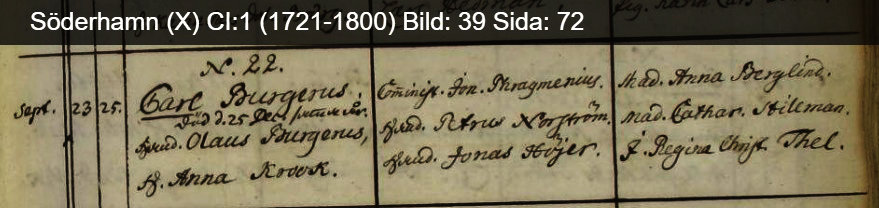 Söderhamn (X) CI:1 (1721-1800) Bild: 39 Sida: 72
N. 22.
Sept. 23 25. Carl Burgerus. Cominist. Jon. Phragmenius. Mad. Anna Berglind.
Död d. 25 Dec.
Olaus Burgerus, Petrus Norström. Mad. Cathar. Hileman.
Anna Krook. Jonas Höijer. J. Regina Christ. Thel.